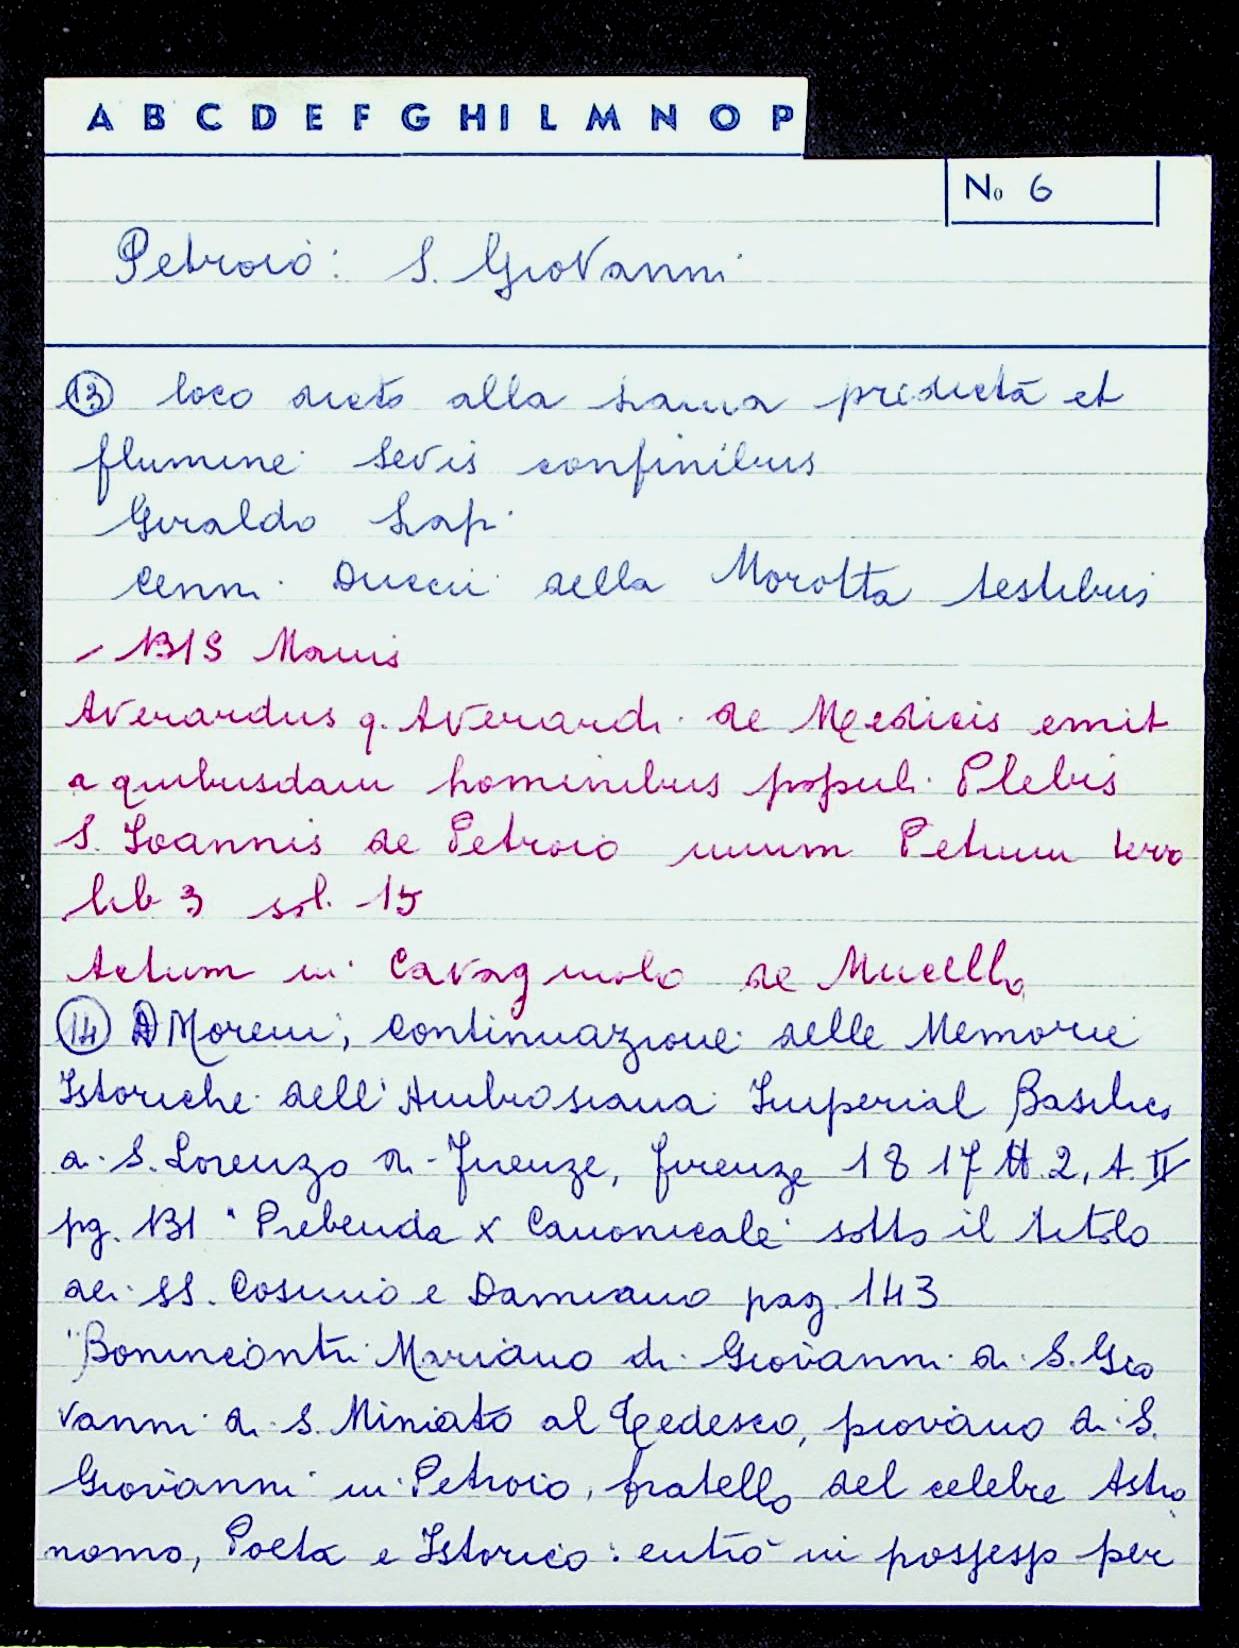 A B C D E F G H I L M N O P
No 6
Petroio: S. Giovanni
13 loco dicto alla predicta et
flumine Sevis confinibus
Giraldo Lapi
Cenni Duccii della Morotta testibus
- 1318 Mauis
Averardus q. Averardi de Medicis emit
a quibusdam hominibus populi Plebis
S. Joannis de Petroio unum Petium terre
lib 3 sol. 15
Actum in Cavagnolo de Mucello
14 D Moreni, Continuazione delle Memorie
Istoriche dell'Ambrosiana Imperial Basilica
di S. Lorenzo di Firenze, Firenze 1817 2, t. II
pg. 131 "Prebenda X Canonicale" sotto il titolo
dei SS. Cosimo e Damiano pag. 143
"Bonincontri Mariano di Giovanni di S. Gio
vanni di S. Miniato al Tedesco, piovano di S.
Giovanni in Petroio, fratello del celebre Astro
nomo, Poeta e Istorico: entrò in possesso per